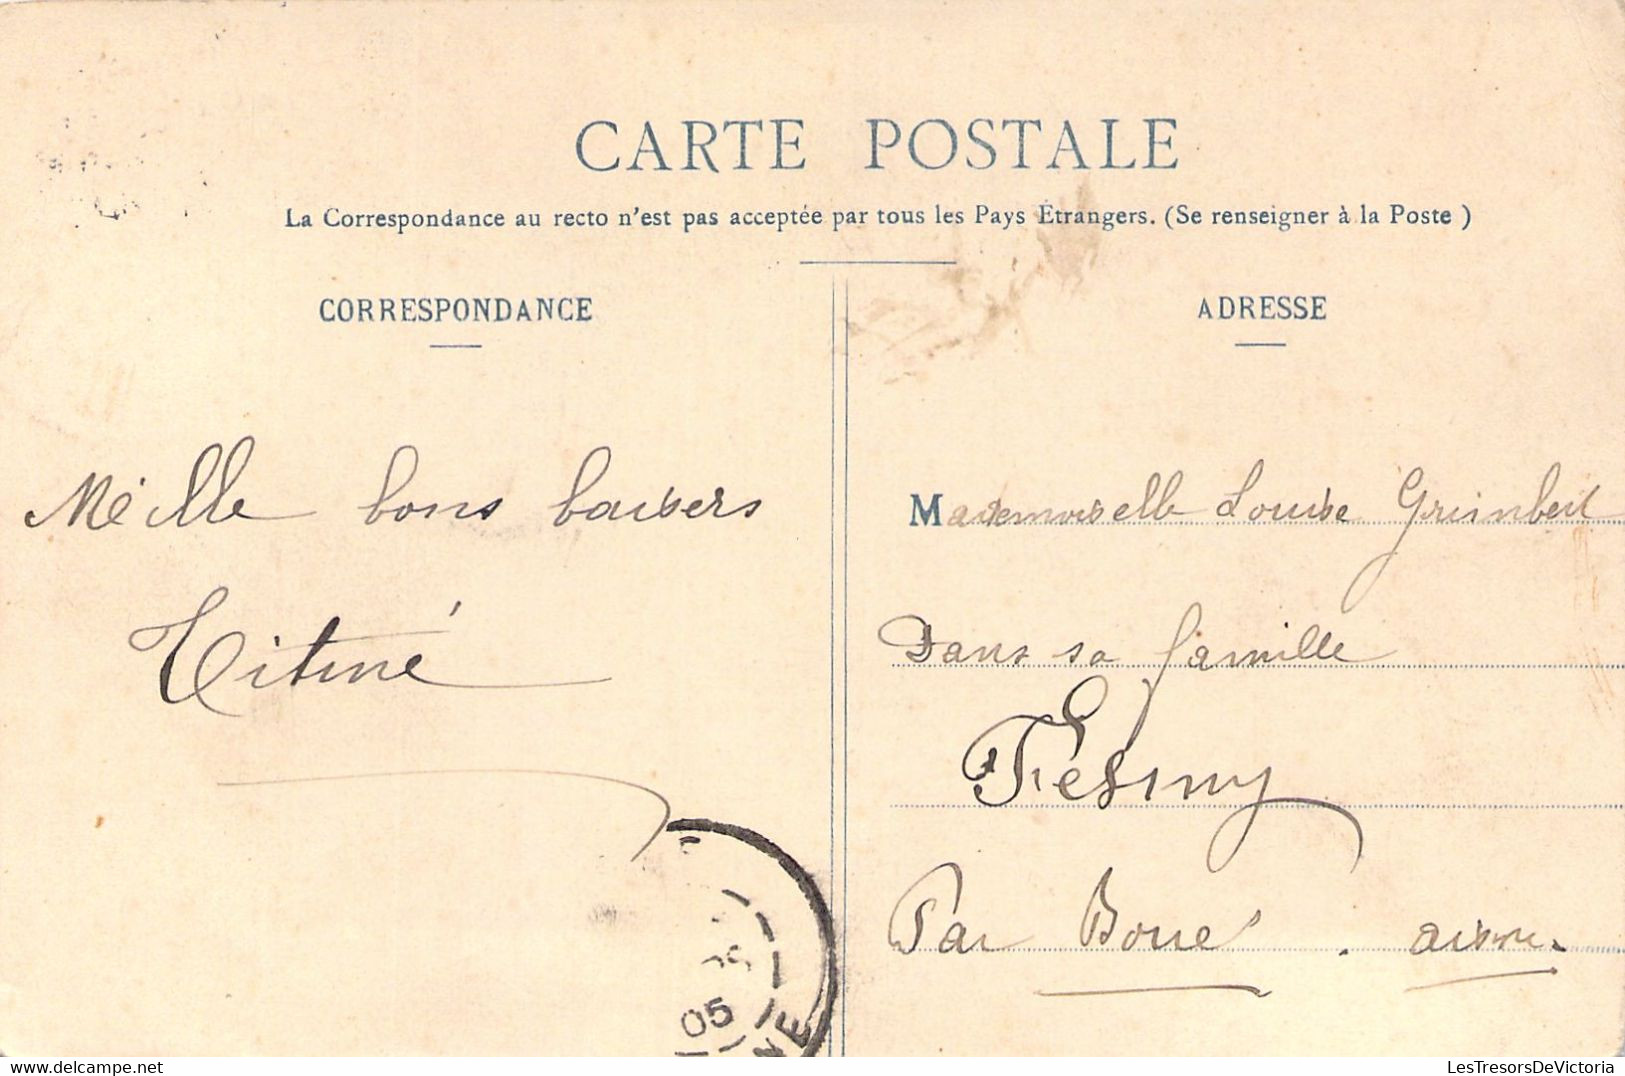 CARTE POSTALE
La Correspondance au recto n'est pas acceptée par tous les Pays Étrangers. (Se renseigner à la Poste )
CORRESPONDANCE
ADRESSE
Mille bons baisers
Titine
Mademoiselle Louise Grimbert
Dans sa famille
Fesmy
Par Boué . aisne.
05
NE
LesTresorsDeVictoria